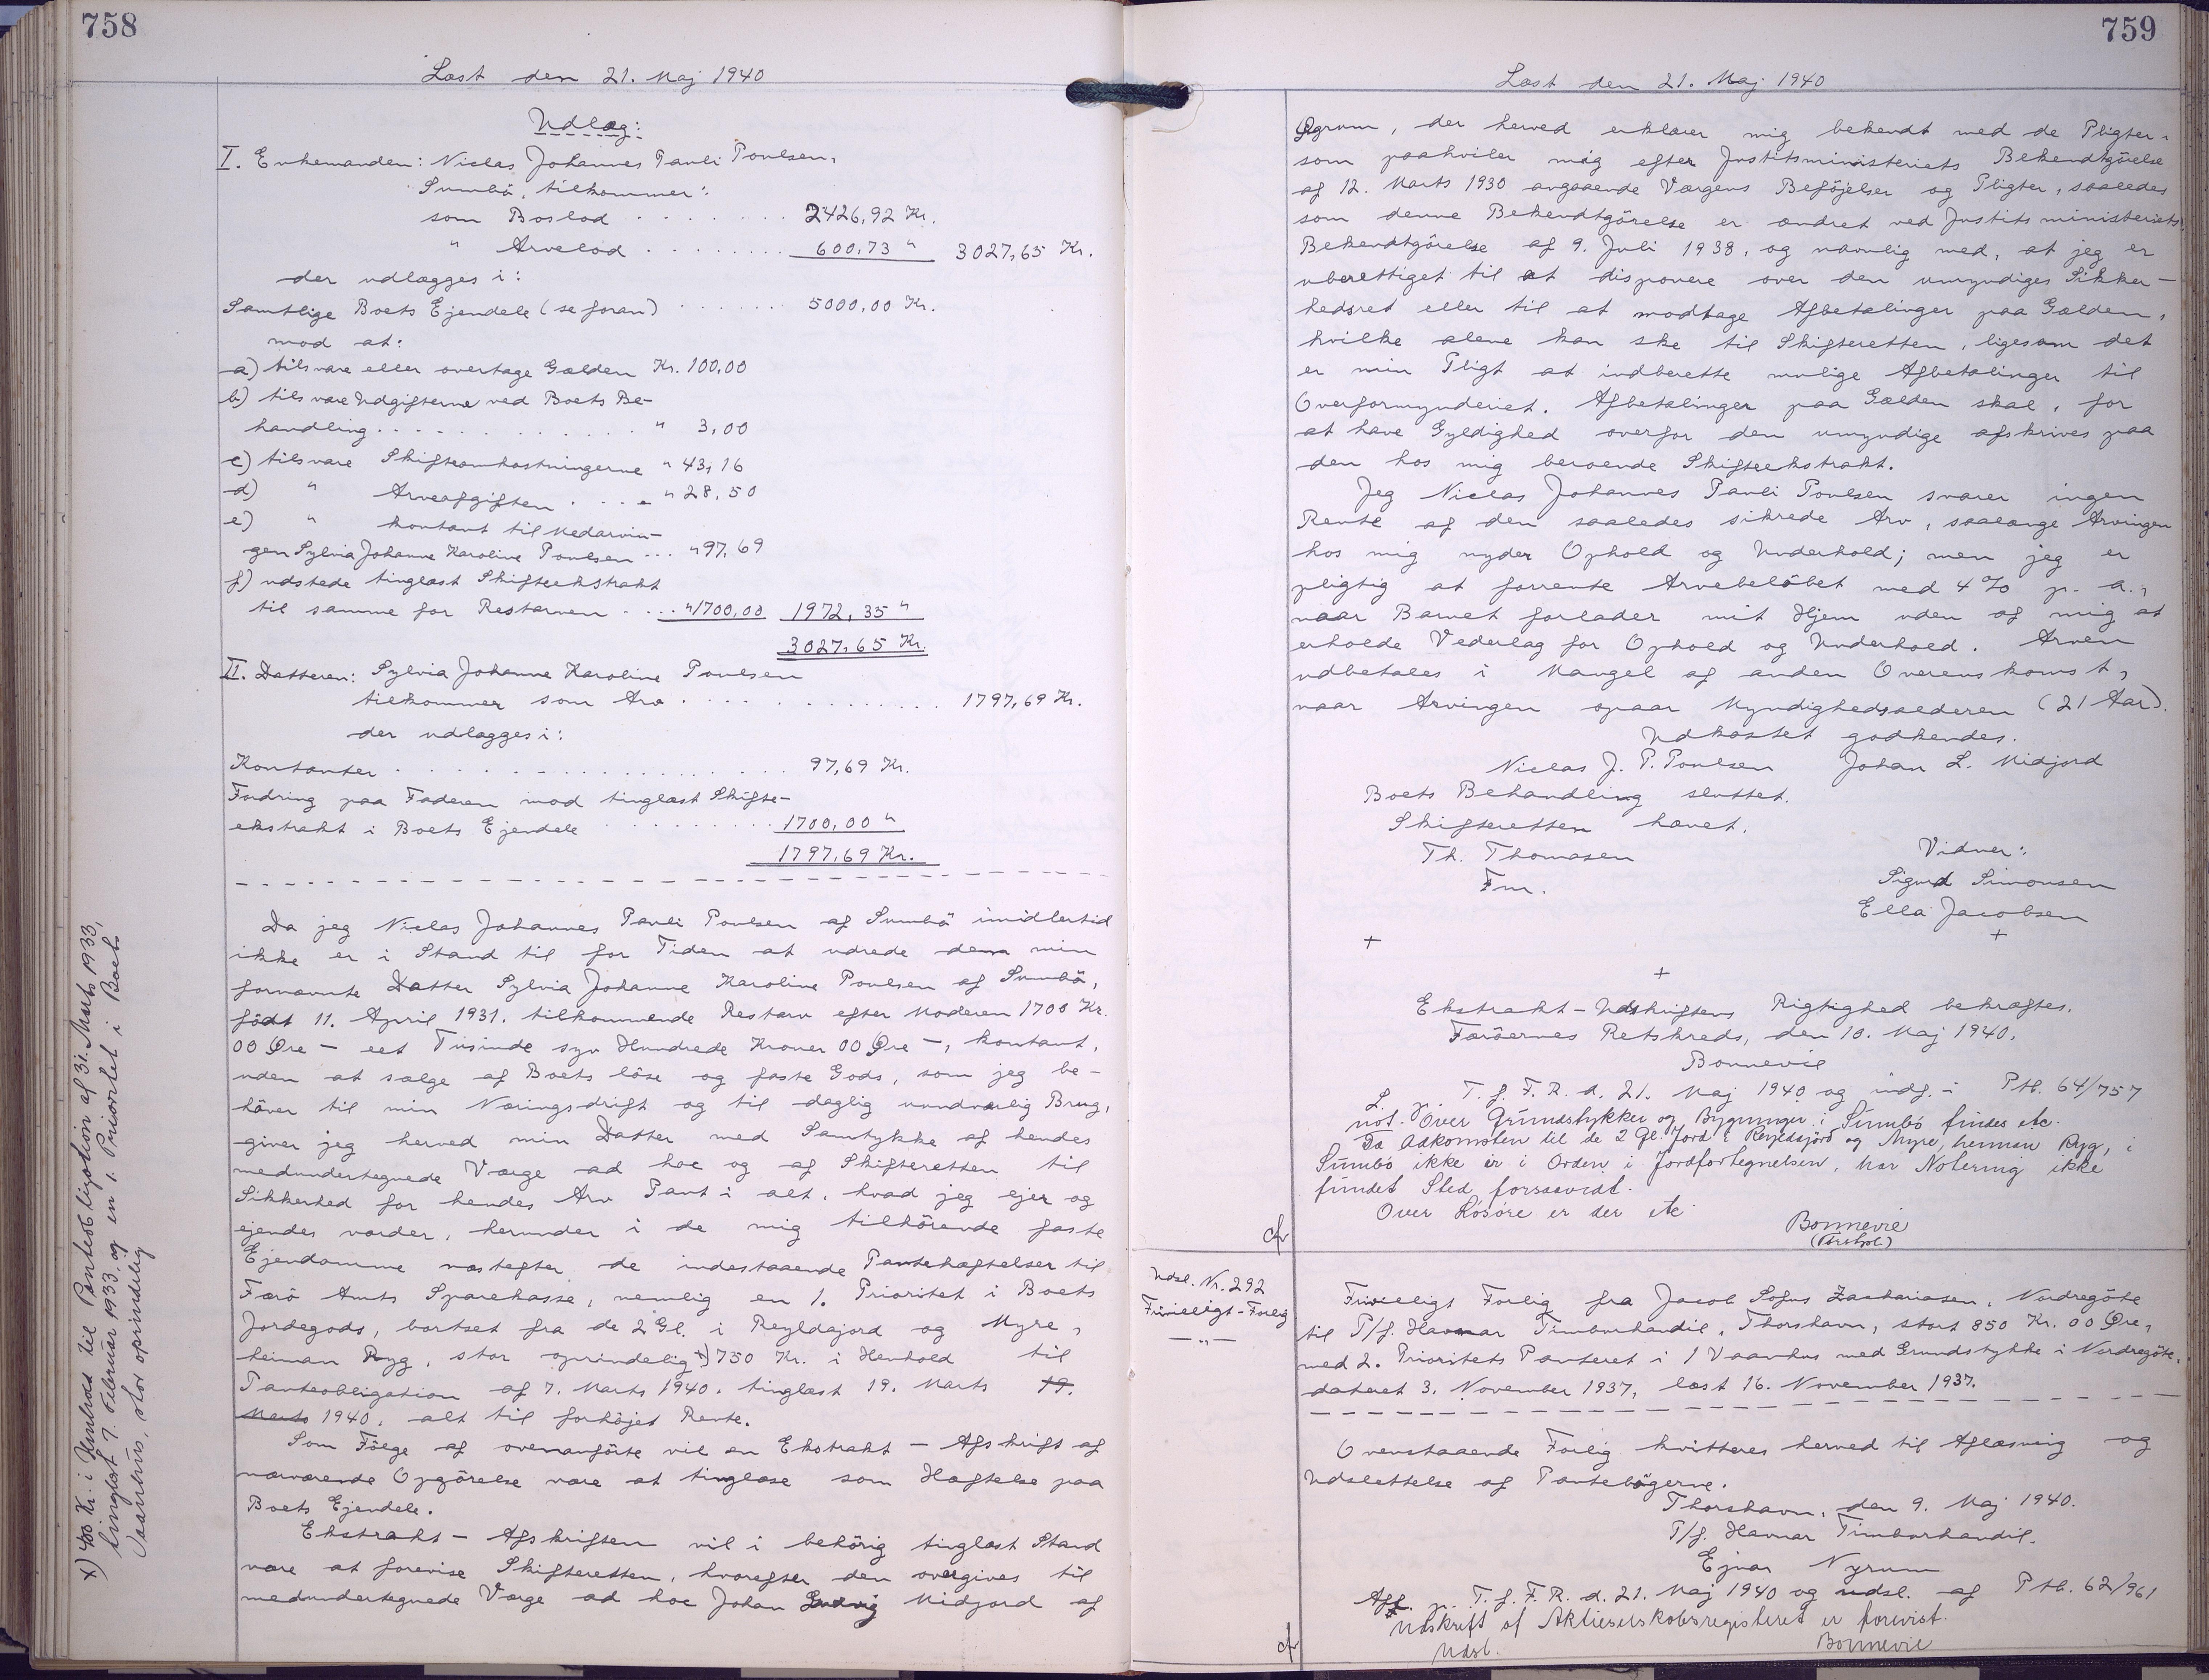 758
Læst den 21. Maj 1940
Udlæg:
I. Enkemanden: Niclas Johannes Pauli Poulsen,
Sumbö, tilkommer:
som Boslod . . . . . . . 2426,92 Kr.
" Arvelod . . . . . . . 600,73 " 3027,65 Kr.
der udlægges i:
Samtlige Boets Ejendele (se foran) . . . . . . 5000,00 Kr.
mod at:
a) tilsvare eller overtage Gælden Kr. 100,00
b) tilsvare Udgifterne ved Boets Be-
handling . . . . . . . . . . . . " 3,00
c) tilsvare Skifteomkostningerne " 43,16
d) " Arveafgiften . . . . " 28,50
e) " kontant til Medarvin-
gen Sylvia Johanne Karoline Poulsen ... " 97,69
f) udstede tinglæst Skifteekstrakt
til samme for Restarven . . . . "1700,00 1972,35 "
3027,65 Kr.
II. Datteren: Sylvia Johanne Karoline Poulsen
tilkommer som Arv . . . . . . . . . . . . . 1797,69 Kr.
der udlægges i:
Kontanter . . . . . . . . . . . . . . . . . 97,69 Kr.
Fordring paa Faderen mod tinglæst Skifte-
ekstrakt i Boets Ejendele . . . . . . . . . 1700,00 "
1797,69 Kr.
Da jeg Niclas Johannes Pauli Poulsen af Sumbö imidlertid
ikke er i Stand til for Tiden at udrede den min
fornævnte Datter Sylvia Johanne Karoline Poulsen af Sumbö,
födt 11. April 1931. tilkommende Restarv efter Moderen 1700 Kr.
00 Øre - eet Tusinde syv Hundrede Kroner 00 Øre -, kontant,
uden at sælge af Boets löse og faste Gods, som jeg be-
höver til min Næringsdrift og til daglig uundværlig Brug,
giver jeg herved min Datter med Samtykke af hendes
medundertegnede Værge ad hoc og af Skifteretten til
Sikkerhed for hendes Arv Pant i alt, hvad jeg ejer og
ejendes vorder, herunder i de mig tilhörende faste
Ejendomme næstefter de indestaaende Pantehæftelser til
Færö Amts Sparekasse, nemlig en 1. Prioritet i Boets
Jordegods, bortset fra de 2 Gl. i Reyldajord og Myre,
heiman Ryg, stor oprindelig +) 750 Kr. i Henhold til
Panteobligation af 7. Marts 1940. tinglæst 19. Marts 19.
Marts 1940, alt til forhöjet Rente.
Som Fölge af ovenanförte vil en Ekstrakt - Afskrift af
nærværende Opgörelse være at tinglæse som Hæftelse paa
Boets Ejendele.
Ekstrakt - Afskriften vil i behörig tinglæst Stand
være at forevise Skifteretten, hvorefter den overgives til
medundertegnede Værge ad hoc Johan Ludvig Midjord af
x) 400 Kr. i Henhold til Panteobligation af 31. Marts 1933,
tinglæst 7. Februar 1933. og en 1. Prioritet i Boets
Vaanhus, stor oprindelig
759
Læst den 21. Maj 1940
Øgrum, der herved erklærer mig bekendt med de Pligter,
som paahviler mig efter Justitsministeriets Bekendtgörelse
af 12. Marts 1930 angaaende Værgens Beföjelser og Pligter, saaledes
som denne Bekendtgörelse er ændret ved Justitsministeriets
Bekendtgörelse af 9. Juli 1938, og navnlig med, at jeg er
uberettiget til at disponere over den umyndiges Sikker-
hedsret eller til at modtage Afbetalinger paa Gælden,
hvilke alene kan ske til Skifteretten, ligesom det
er min Pligt at indberette mulige Afbetalinger til
Overformynderiet. Afbetalinger paa Gælden skal, for
at have Gyldighed overfor den umyndige afskrives paa
den hos mig beroende Skifteekstrakt.
Jeg Niclas Johannes Pauli Poulsen svarer ingen
Rente af den saaledes sikrede Arv, saalænge Arvingen
hos mig nyder Ophold og Underhold; men jeg er
pligtig at forrente Arvebelöbet med 4 % p. a.,
naar Barnet forlader mit Hjem uden af mig at
erholde Vederlag for Ophold og Underhold. Arven
udbetales i Mangel af anden Overenskomst,
naar Arvingen opnaar Myndighedsalderen (21 Aar).
Udkastet godkendes.
Niclas J. P. Poulsen Johan L. Midjord
Boets Behandling sluttet.
Skifteretten hævet.
Th. Thomasen
Fm.
Vidner:
Sigurd Simonsen
Ella Jacobsen
+ + +
Ekstrakt - Udskriftens Rigtighed bekræftes.
Færöernes Retskreds, den 10. Maj 1940.
Bonnevie
L. p. T. f. F. R. d. 21. Maj 1940 og indf. i Ptb. 64/757
not. Over Grundstykker og Bygninger i Sumbö findes etc.
Da Adkomsten til de 2 Gl. Jord i Reyldajord og Myre, heiman Ryg, i
Sumbö ikke er i Orden i Jordfortegnelsen, har Notering ikke
fundet Sted forsaavidt.
Over Lösöre er der etc.
Bonnevie
cfr
Udsl. Nr. 292
Frivilligt - Forlig
— " —
Frivilligt Forlig fra Jacob Sofus Zachariasen, Nordregöte
til P/f. Havnar Timburhandil, Thorshavn, stort 850 Kr. 00 Øre,
med 2. Prioritets Panteret i 1 Vaanhus med Grundstykke i Nordregöte,
dateret 3. November 1937, læst 16. November 1937.
Ovenstaaende Forlig kvitteres herved til Aflæsning og
Udslettelse af Pantebögerne.
Thorshavn, den 9. Maj 1940.
P/f. Havnar Timburhandil.
Ejnar Nyrum
Afl. p. T. f. F. R. d. 21. Maj 1940 og udsl. af Ptb. 62/961
Udskrift af Aktieselskabsregisteret er forevist.
Udsl. Bonnevie
cfr